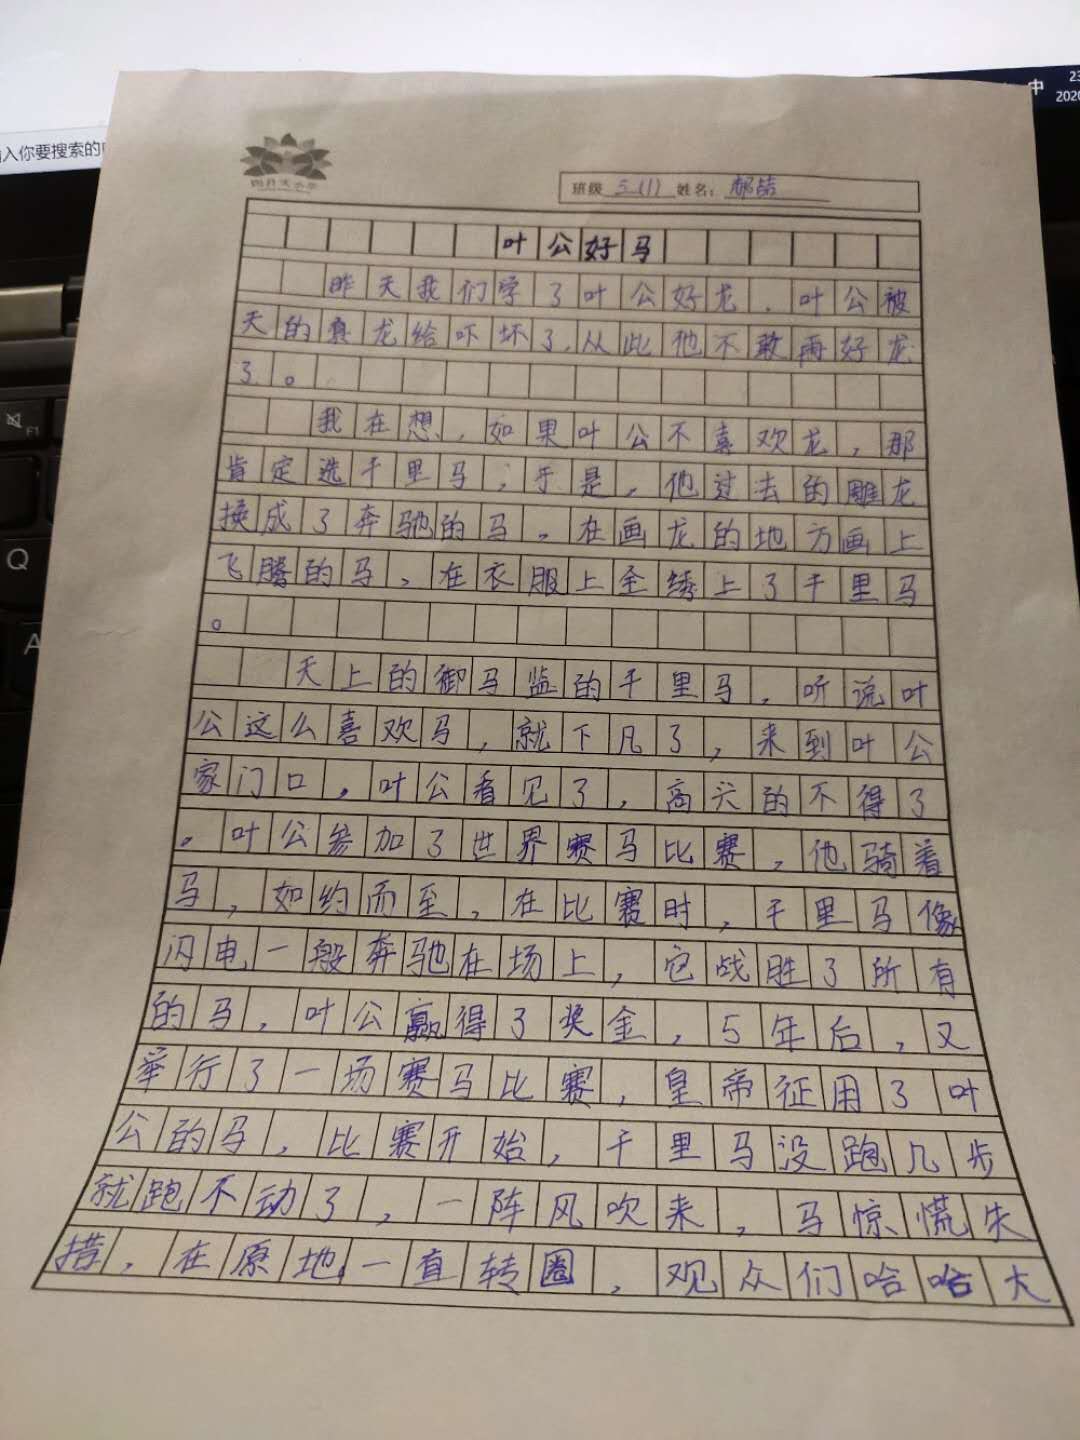 中
23
2020
输入你要搜索的内
班级 三(1) 姓名:
叶公好马
昨天我们学了叶公好龙．叶公被
天的真龙给吓坏了．从此他不敢再好龙
了．。
我在想，如果叶公不喜欢龙，那
肯定选千里马，于是，他过去的雕龙
换成了奔驰的马。在画龙的地方画上
飞腾的马，在衣服上全绣上了千里马
。
天上的御马监的千里马，听说叶
公这么喜欢马，就下凡了，来到叶公
家门口，叶公看见了，高兴的不得了
。叶公参加了世界赛马比赛，他骑着
马，如约而至，在比赛时，千里马像
闪电一般奔驰在场上，它战胜了所有
的马，叶公赢得了奖金，5年后，又
举行了一场赛马比赛，皇帝征用了叶
公的马，比赛开始，千里马没跑几步
就跑不动了，一阵风吹来，马惊慌失
措，在原地一直转圈，观众们哈哈大
F1
Q
A